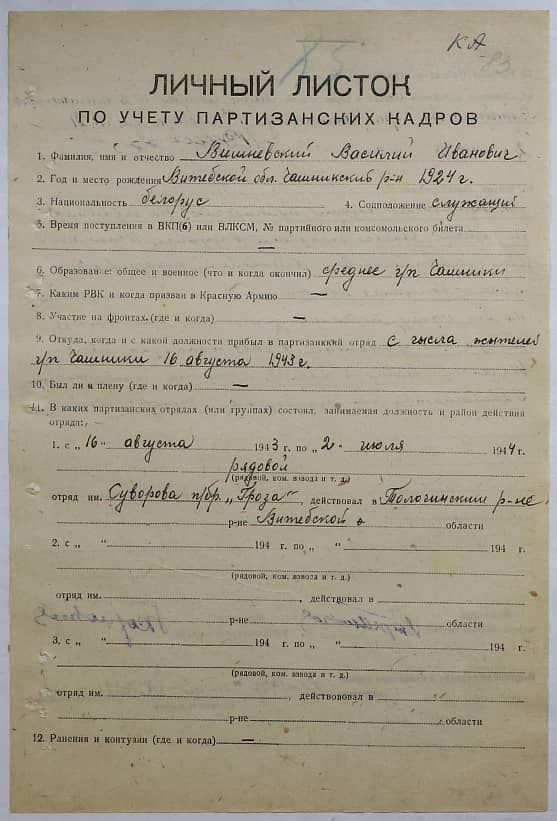 КА
83
ЛИЧНЫЙ ЛИСТОК
ПО УЧЕТУ ПАРТИЗАНСКИХ КАДРОВ
1. Фамилия, имя и отчество Вишневский Василий Иванович
2. Год и место рождения Витебской обл. Чашникский р-н 1924 г.
3. Национальность белорус 4. Соцположение служащий
5. Время поступления в ВКП(б) или ВЛКСМ, № партийного или комсомольского билета
—
6. Образование: общее и военное (что и когда окончил) среднее г/п Чашники
7. Каким РВК и когда призван в Красную Армию —
8. Участие на фронтах (где и когда) —
9. Откуда, когда и с какой должности прибыл в партизанский отряд с числа жителей
г/п Чашники 16 августа 1943 г.
10. Был ли в плену (где и когда) —
11. В каких партизанских отрядах (или группах) состоял, занимаемая должность и район действия
отряда:
1. с „16" августа 1943 г. по „2" июля 1944 г.
рядовой
(рядовой, ком. взвода и т. д.)
отряд им. Суворова п/бр. „Гроза", действовал в Толочинским р-не
р-не Витебской о области
2. с „ " 194 г. по „ " 194 г.
(рядовой, ком. взвода и т. д.)
отряд им. , действовал в
р-не области
3. с „ " 194 г. по „ " 194 г.
(рядовой, ком. взвода и т. д.)
отряд им. , действововал в
р-не области
12. Ранения и контузии (где и когда) —